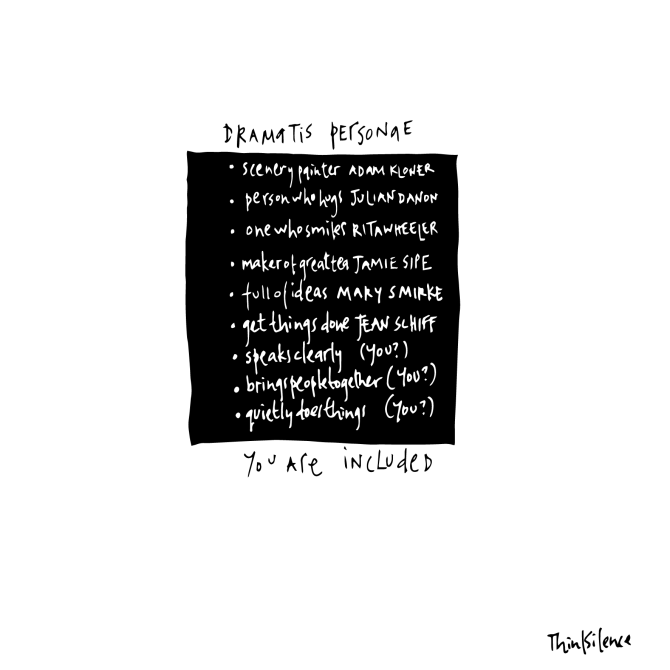 DRAMATIS PERSONAE
• scenery painter ADAM KLONER
• person who hugs JULIAN DANON
• one who smiles RITA WHEELER
• maker of great tea JAMIE SIPE
• full of ideas MARY SMIRKE
• get things done JEAN SCHIFF
• speaks clearly (YOU?)
• brings people together (YOU?)
• quietly does things (YOU?)
YOU ARE INCLUDED
ThinkSilence